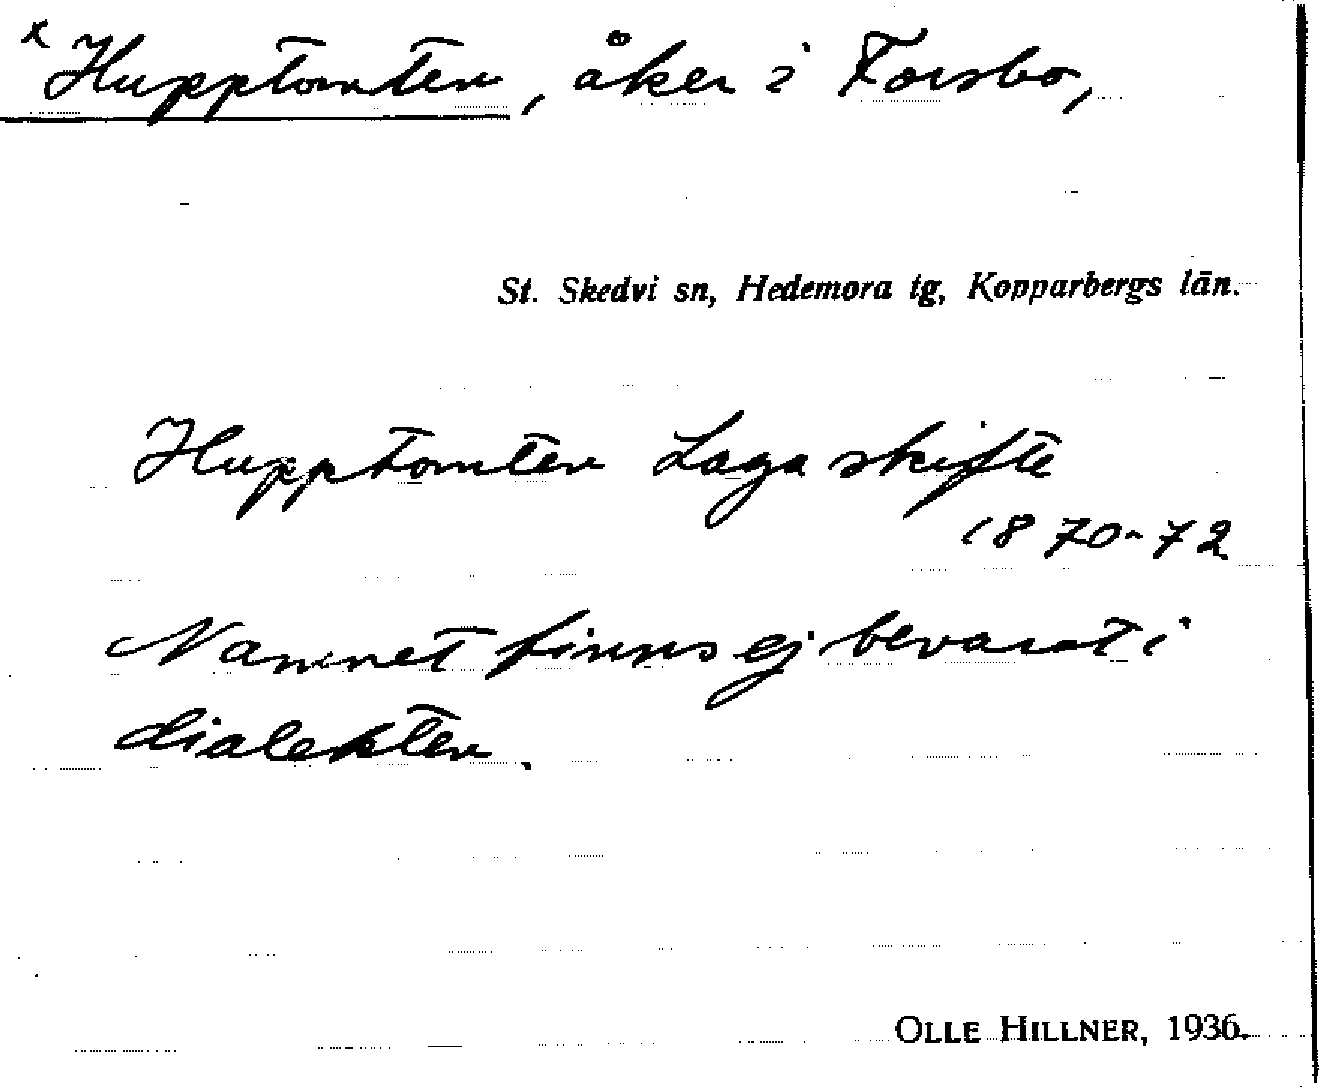 x Hupptomten, åker i Forsbo,
St. Skedvi sn, Hedemora tg, Kopparbergs län.
Hupptomten Laga skifte
1870-72
Namnet finns ej bevarat i
dialekten.
OLLE HILLNER, 1936.